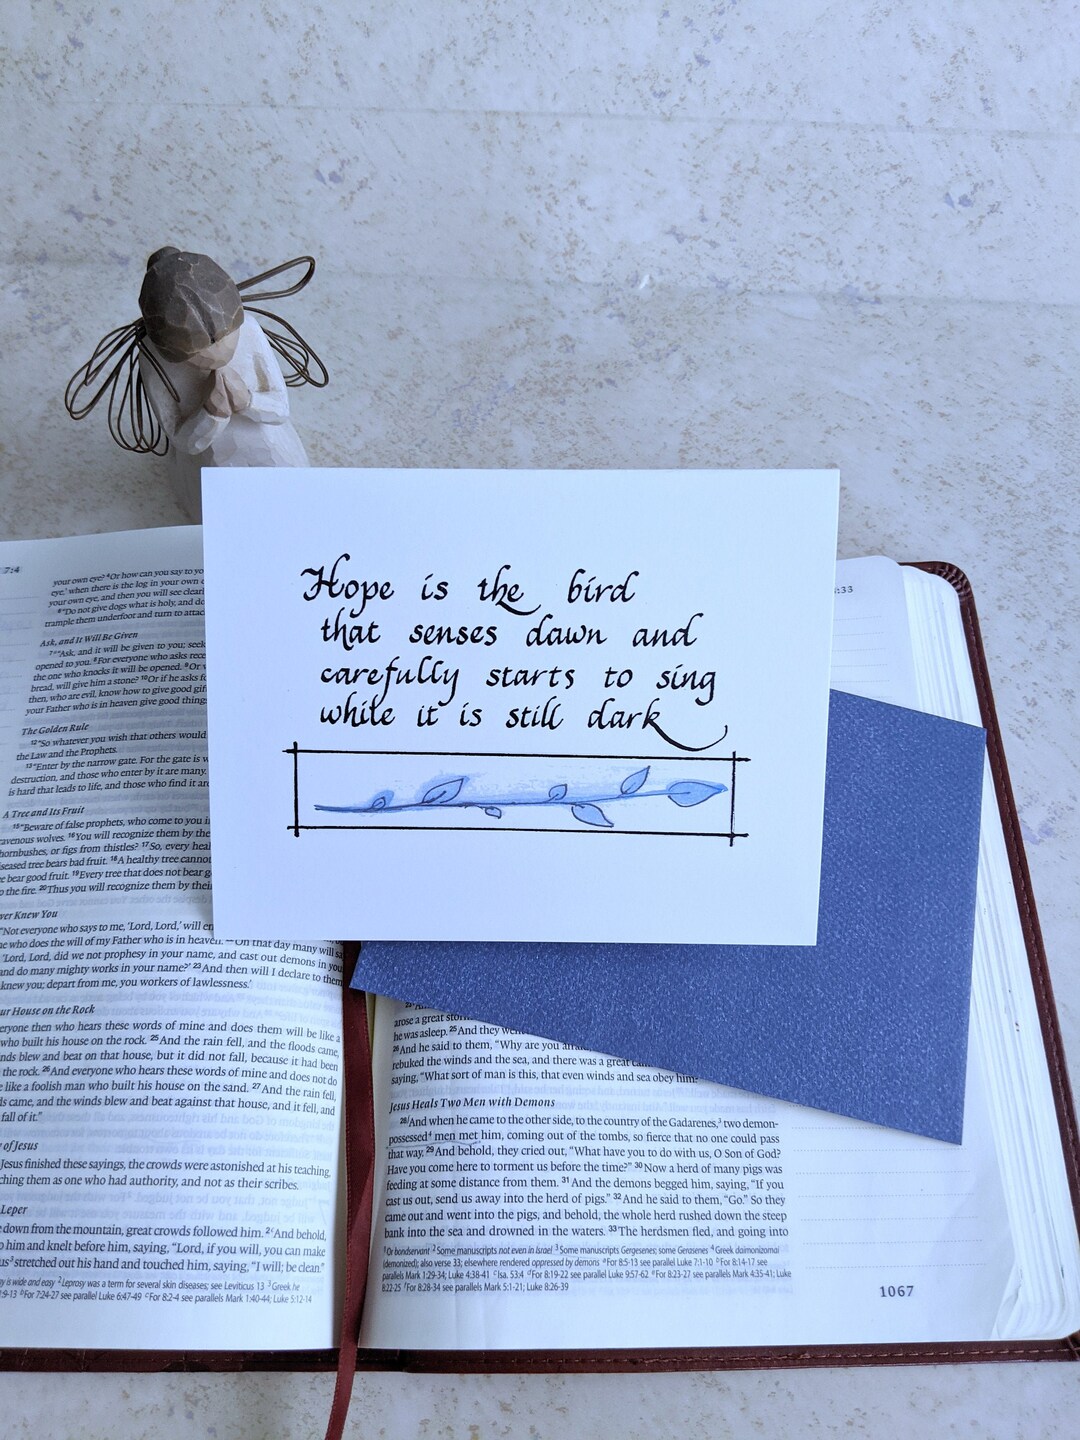 Hope is the bird
that senses dawn and
carefully starts to sing
while it is still dark
7:4
your own eye? ⁴Or how can you say to yo
eye,' when there is the log in your own
your own eye, and then you will see clearl
⁶"Do not give dogs what is holy, and do
trample them underfoot and turn to attac
Ask, and It Will Be Given
⁷"Ask, and it will be given to you; seek
opened to you. ⁸For everyone who asks rece
the one who knocks it will be opened. ⁹Or
bread, will give him a stone? ¹⁰Or if he asks fo
then, who are evil, know how to give good gif
your Father who is in heaven give good things
The Golden Rule
¹²"So whatever you wish that others would
the Law and the Prophets.
¹³"Enter by the narrow gate. For the gate is w
destruction, and those who enter by it are many.
is hard that leads to life, and those who find it ar
A Tree and Its Fruit
¹⁵"Beware of false prophets, who come to you i
ravenous wolves. ¹⁶You will recognize them by the
hornbushes, or figs from thistles? ¹⁷So, every heal
seased tree bears bad fruit. ¹⁸A healthy tree cannot
e bear good fruit. ¹⁹Every tree that does not bear g
o the fire. ²⁰Thus you will recognize them by their
ver Knew You
"Not everyone who says to me, 'Lord, Lord,' will en
e who does the will of my Father who is in heaven. On that day many will sa
'Lord, Lord, did we not prophesy in your name, and cast out demons in you
and do many mighty works in your name?' ²³And then will I declare to them
knew you; depart from me, you workers of lawlessness.'
ur House on the Rock
eryone then who hears these words of mine and does them will be like a
who built his house on the rock. ²⁵And the rain fell, and the floods came,
nds blew and beat on that house, but it did not fall, because it had been
the rock. ²⁶And everyone who hears these words of mine and does not do
like a foolish man who built his house on the sand. ²⁷And the rain fell,
ds came, and the winds blew and beat against that house, and it fell, and
fall of it."
y of Jesus
Jesus finished these sayings, the crowds were astonished at his teaching,
ching them as one who had authority, and not as their scribes.
Leper
down from the mountain, great crowds followed him. ²And behold,
him and knelt before him, saying, "Lord, if you will, you can make
us³ stretched out his hand and touched him, saying, "I will; be clean."
y is wide and easy ²Leprosy was a term for several skin diseases; see Leviticus 13 ³Greek he
:9-13 ᵇFor 7:24-27 see parallel Luke 6:47-49 ᶜFor 8:2-4 see parallels Mark 1:40-44; Luke 5:12-14
:33
arose a great stor
he was asleep. ²⁵And they went
²⁶And he said to them, "Why are you afra
rebuked the winds and the sea, and there was a great
saying, "What sort of man is this, that even winds and sea obey him?
Jesus Heals Two Men with Demons
²⁸And when he came to the other side, to the country of the Gadarenes,³ two demon-
possessed⁴ men met him, coming out of the tombs, so fierce that no one could pass
that way. ²⁹And behold, they cried out, "What have you to do with us, O Son of God?
Have you come here to torment us before the time?" ³⁰Now a herd of many pigs was
feeding at some distance from them. ³¹And the demons begged him, saying, "If you
cast us out, send us away into the herd of pigs." ³²And he said to them, "Go." So they
came out and went into the pigs, and behold, the whole herd rushed down the steep
bank into the sea and drowned in the waters. ³³The herdsmen fled, and going into
¹Or bondservant ²Some manuscripts not even in Israel ³Some manuscripts Gergesenes; some Gerasenes ⁴Greek daimonizomai
(demonized); also verse 33; elsewhere rendered oppressed by demons ᵃFor 8:5-13 see parallel Luke 7:1-10 ᵇFor 8:14-17 see
parallels Mark 1:29-34; Luke 4:38-41 ᶜIsa. 53:4 ᵈFor 8:19-22 see parallel Luke 9:57-62 ᵉFor 8:23-27 see parallels Mark 4:35-41; Luke
8:22-25 ᶠFor 8:28-34 see parallels Mark 5:1-21; Luke 8:26-39
1067